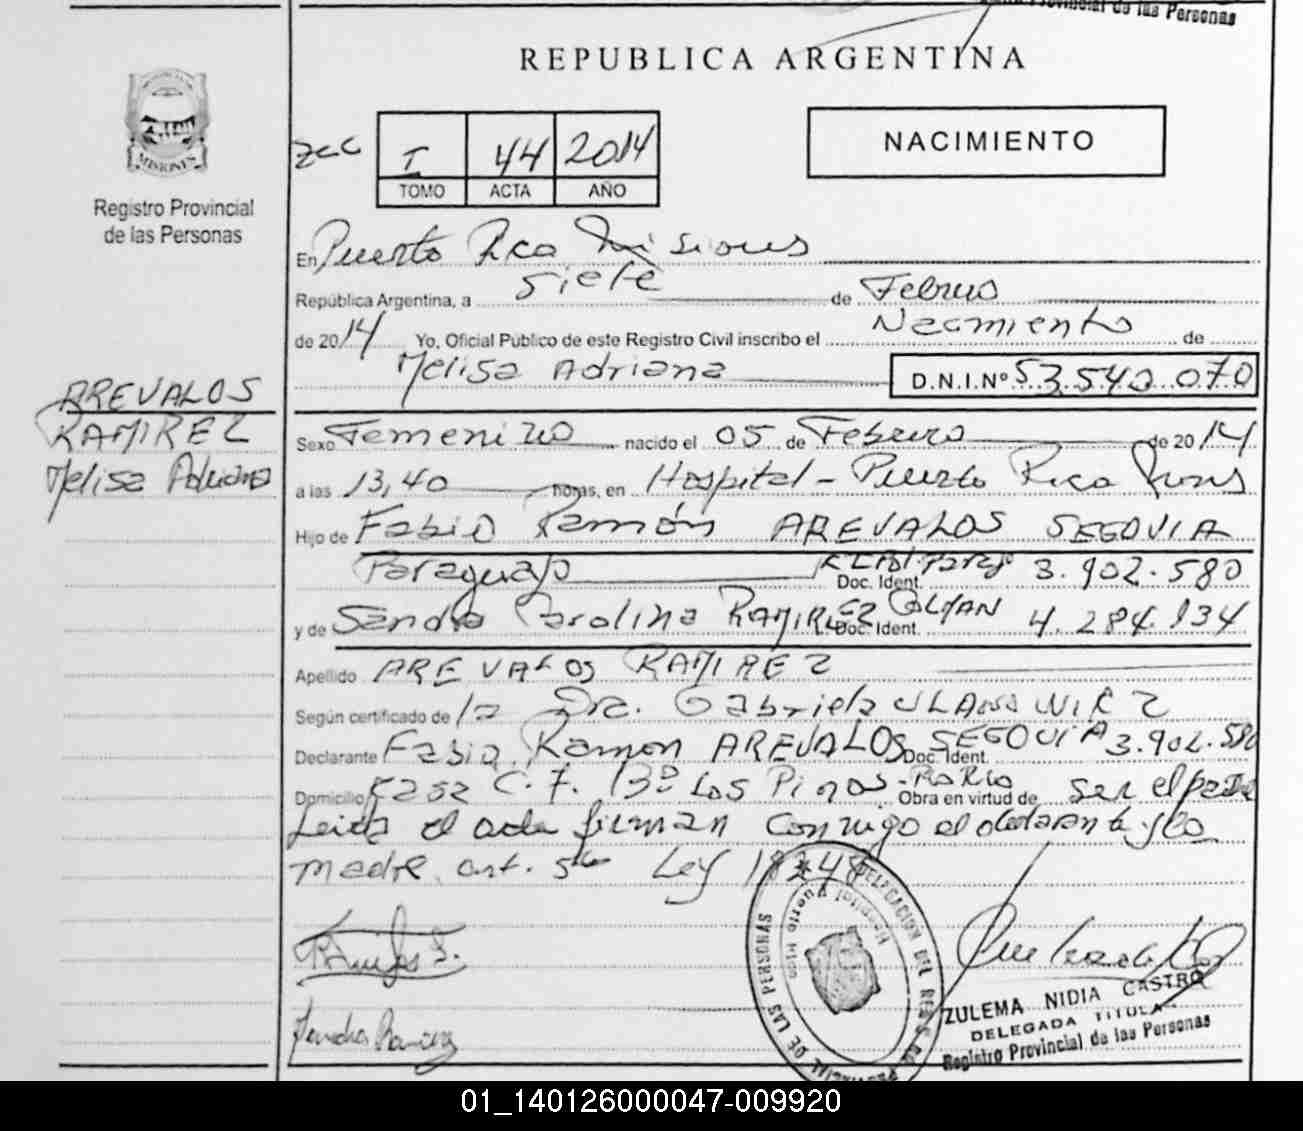 Provincial de las Personas
REPUBLICA ARGENTINA
I 44 2014
TOMO ACTA AÑO
NACIMIENTO
MISIONES
Registro Provincial
de las Personas
En Puerto Rico Misiones
República Argentina, a siete de Febrero
de 2014 Yo, Oficial Público de este Registro Civil inscribo el Nacimiento de
Melisa Adriana D.N.I.Nº 53.540.070
AREVALOS
RAMIREZ
Melisa Adriana
Sexo Femenino nacido el 05 de Febrero de 2014
a las 13,40 horas, en Hospital - Puerto Rico Mnes
Hijo de Fabio Ramón AREVALOS SEGOVIA
Paraguayo Doc. Ident. 3.902.580
y de Sandra Carolina RAMIREZ Doc. Ident. 4.284.134
Apellido AREVALOS RAMIREZ
Según certificado de la Dra. Gabriela
Declarante Fabio Ramon AREVALOS SEGOVIA Doc. Ident. 3.902.580
Domicilio Casa C.F. Bº Los Pinos - Pto Rico Obra en virtud de ser el padre
Leída el acta firman conmigo el declarante y la
madre art. 5to Ley 18248
DELEGACION DEL REG. PROVINCIAL DE LAS PERSONAS
Hospital Puerto Rico
Sandra Ramirez
ZULEMA NIDIA CASTRO
DELEGADA TITULAR
Registro Provincial de las Personas
01_140126000047-009920